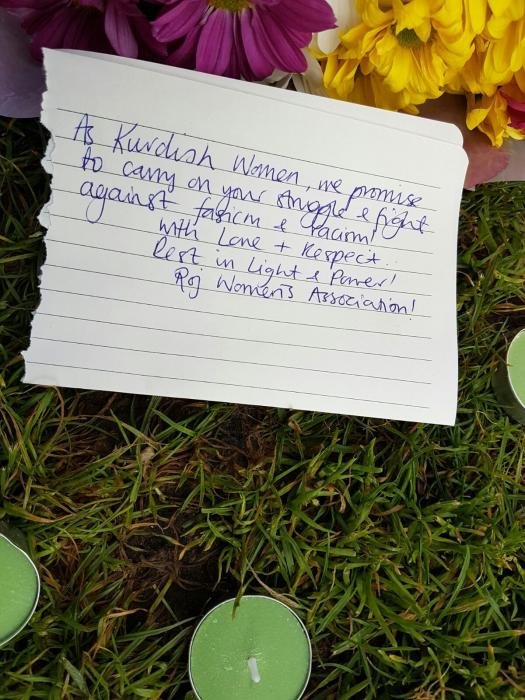 As Kurdish Women, we promise
to carry on your struggle & fight
against fashicm & racism!
with Love + Respect..
Rest in Light & Power!
Roj Women's Association!